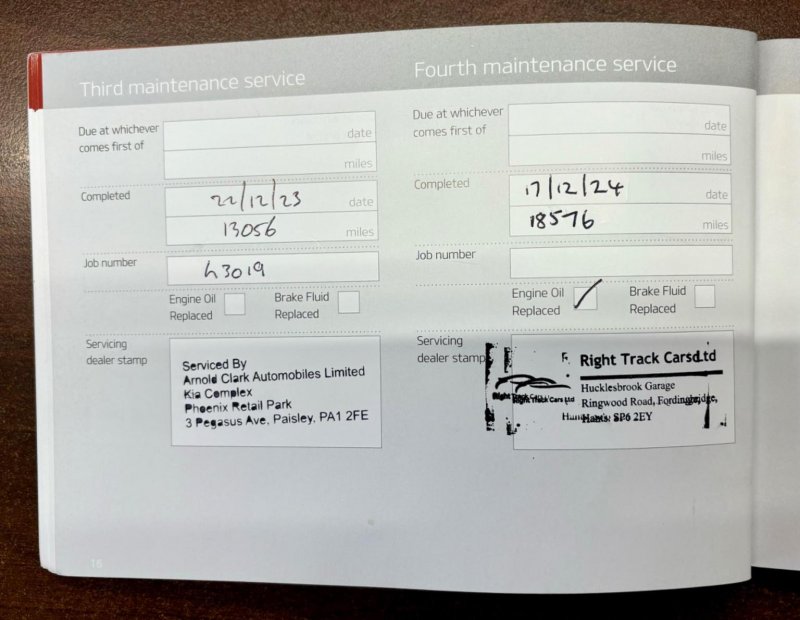 Third maintenance service
Due at whichever
comes first of
date
miles
Completed
22/12/23 date
13056 miles
Job number
h3019
Engine Oil
Replaced
Brake Fluid
Replaced
Servicing
dealer stamp
Serviced By
Arnold Clark Automobiles Limited
Kia Complex
Phoenix Retail Park
3 Pegasus Ave, Paisley, PA1 2FE
16
Fourth maintenance service
Due at whichever
comes first of
date
miles
Completed
17/12/24 date
18576 miles
Job number
Engine Oil
Replaced
Brake Fluid
Replaced
Servicing
dealer stamp
Right Track Cars Ltd
Right Track Carsd.td
Hucklesbrook Garage
Ringwood Road, Fordingbridge,
Hants. SP6 2EY